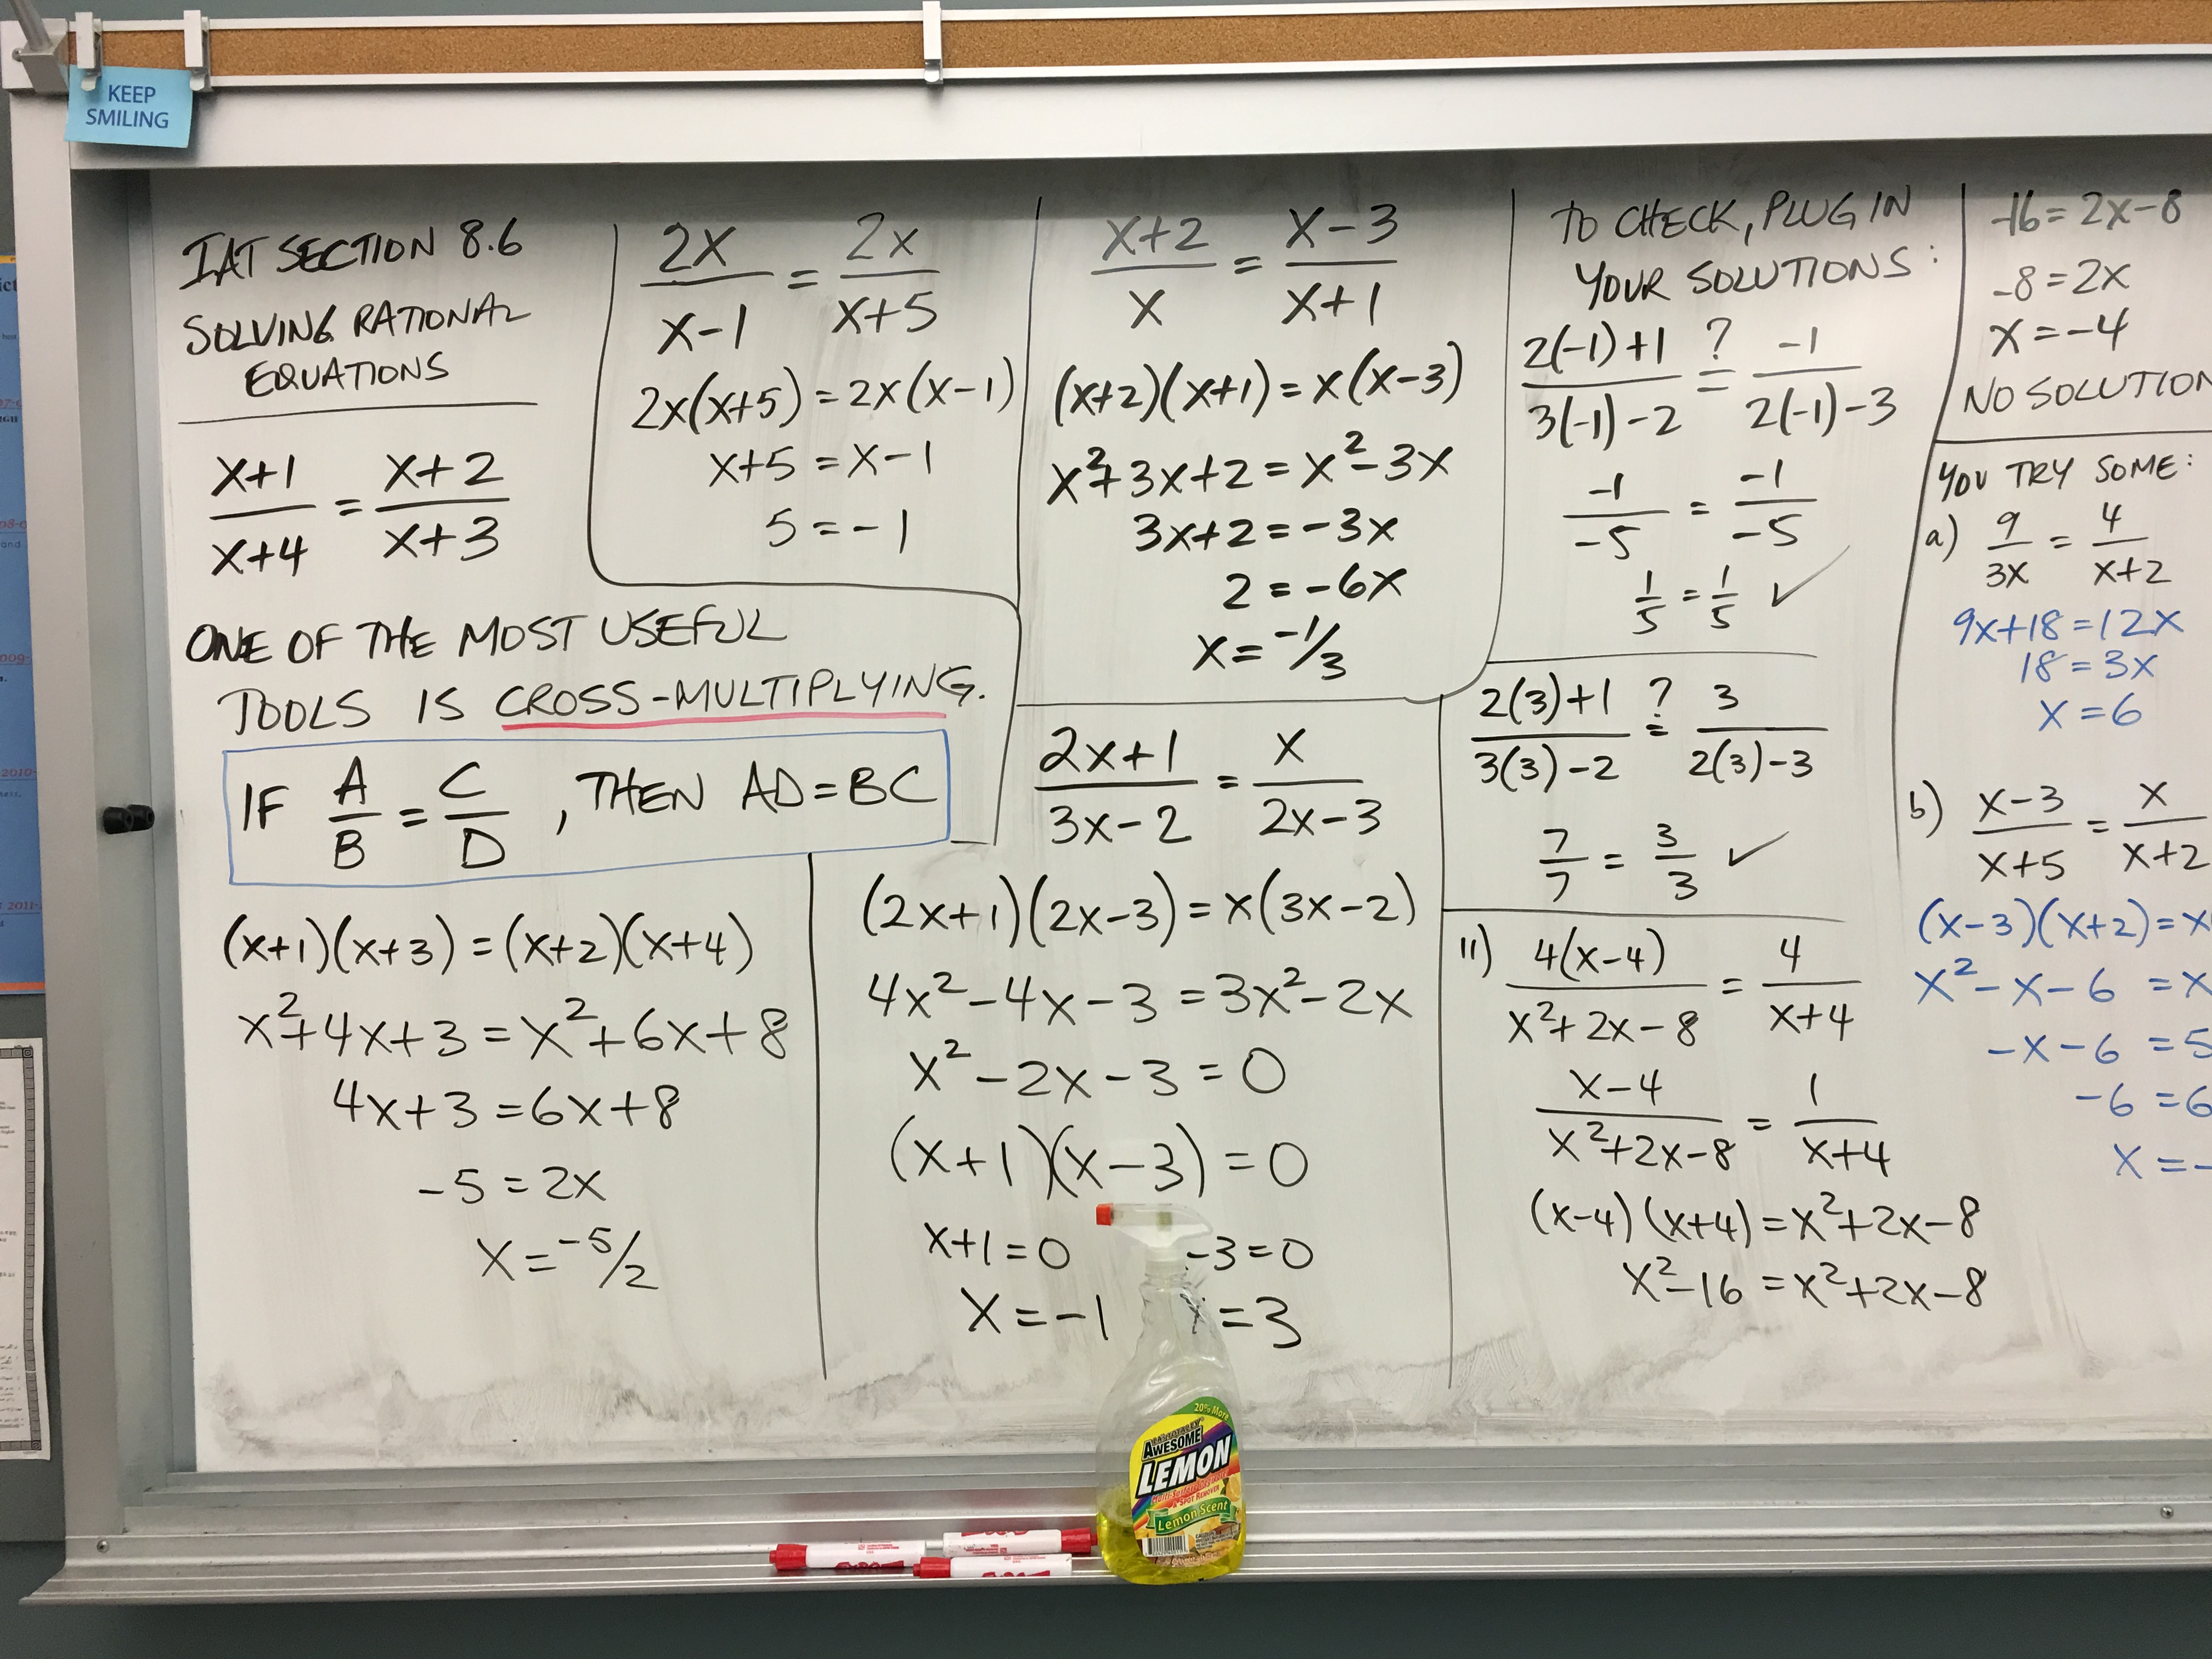 KEEP
SMILING
IAT SECTION 8.6
SOLVING RATIONAL
EQUATIONS
x+1/x+4 = x+2/x+3
ONE OF THE MOST USEFUL
TOOLS IS CROSS-MULTIPLYING.
IF A/B = C/D, THEN AD=BC
(x+1)(x+3)=(x+2)(x+4)
x²+4x+3=x²+6x+8
4x+3=6x+8
-5=2x
x=-5/2
2x/x-1 = 2x/x+5
2x(x+5)=2x(x-1)
x+5=x-1
5=-1
x+2/x = x-3/x+1
(x+2)(x+1)=x(x-3)
x²+3x+2=x²-3x
3x+2=-3x
2=-6x
x=-1/3
2x+1/3x-2 = x/2x-3
(2x+1)(2x-3)=x(3x-2)
4x²-4x-3=3x²-2x
x²-2x-3=0
(x+1)(x-3)=0
x+1=0 -3=0
x=-1 x=3
TO CHECK, PLUG IN
YOUR SOLUTIONS:
2(-1)+1/3(-1)-2 ?= -1/2(-1)-3
-1/-5 = -1/-5
1/5 = 1/5 ✓
2(3)+1/3(3)-2 ?= 3/2(3)-3
7/7 = 3/3 ✓
11) 4(x-4)/x²+2x-8 = 4/x+4
x-4/x²+2x-8 = 1/x+4
(x-4)(x+4)=x²+2x-8
x²-16=x²+2x-8
-16=2x-8
-8=2x
x=-4
NO SOLUTION
YOU TRY SOME:
a) 9/3x = 4/x+2
9x+18=12x
18=3x
x=6
b) x-3/x+5 = x/x+2
(x-3)(x+2)=x
x²-x-6=x
-x-6=5
-6=6
x=-
20% More
AWESOME
LEMON
& SPOT REMOVER
Lemon Scent